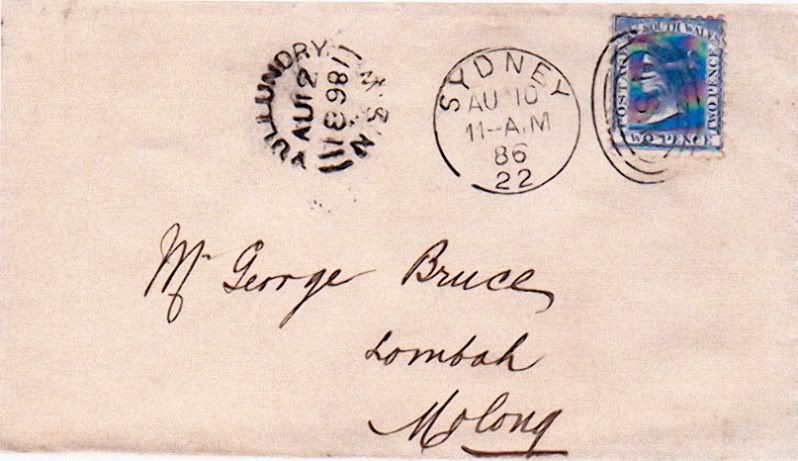 YULLUNDRY
AU 12
1886
N.S.W
SYDNEY
AU 10
11-A.M
86
22
SOUTH WALES
POSTAGE
TWO PENCE
TWO PENCE
Mr George Bruce
Lombah
Molong